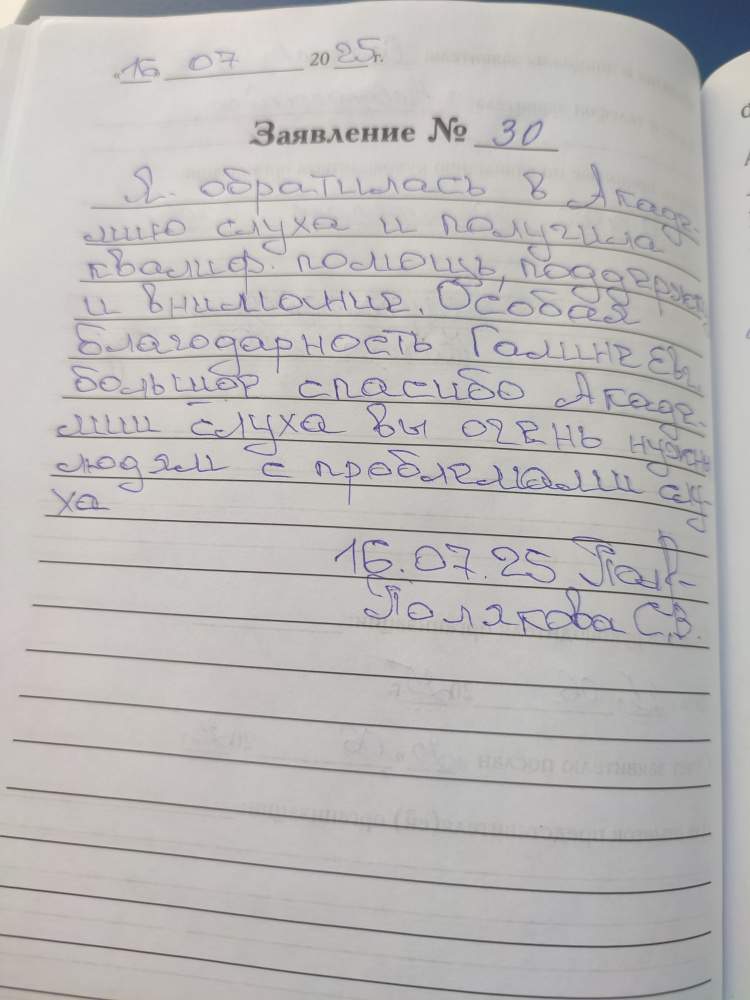 «16» 07 2025г.
Заявление № 30
Я. обратилась в Акаде-
мию слуха и получила
квалиф. помощь, поддержку
и внимание. Особая
благодарность Галине Ев.
большое спасибо Акаде-
мии слуха вы очень нужны
людям с проблемами слу
ха
16.07.25
Полякова С.В.